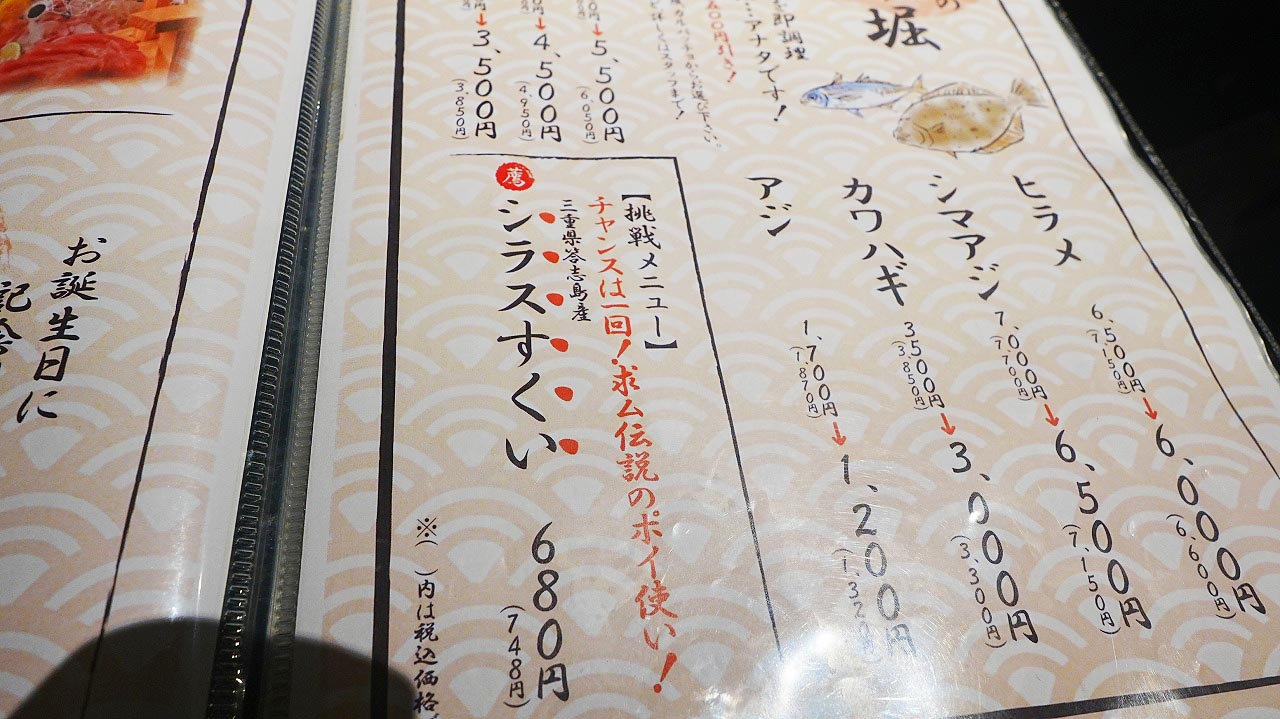 の
堀
を即調理
アナタです!
600円引き!
→5,500円
(6,050円)
→4,500円
(4,950円)
→3,500円
(3,850円)
ヒラメ
6,500円
(7,150円)
→6,000円
(6,600円)
シマアジ
7,000円
(7,700円)
→6,500円
(7,150円)
カワハギ
3,500円
(3,850円)
→3,000円
(3,300円)
アジ
1,700円
(1,870円)
→1,200円
【挑戦メニュー】
チャンスは一回!求ム伝説のポイ使い!
三重県答志島産
シラスすくい
680円
(748円)
※( )内は税込価格
お誕生日に